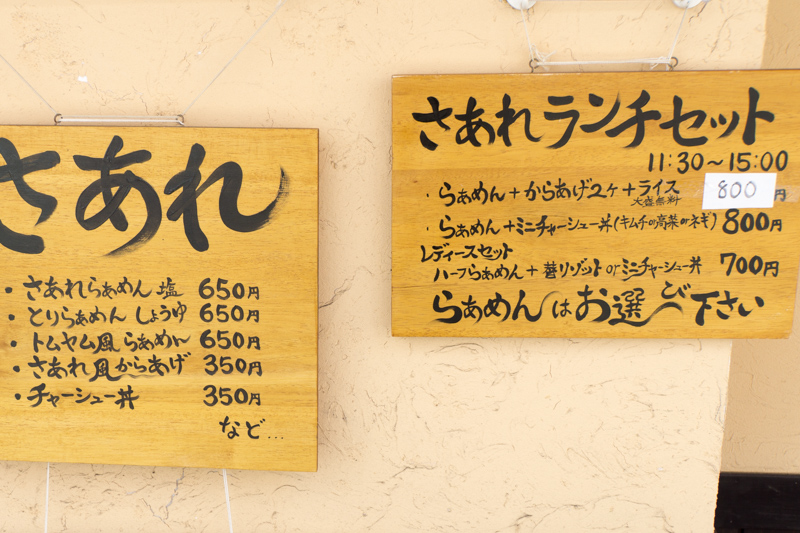 さあれ
・さあれらぁめん 塩 650円
・とりらぁめん しょうゆ 650円
・トムヤム風らぁめん 650円
・さあれ風からあげ 350円
・チャーシュー丼 350円
など…
さあれランチセット
11:30～15:00
・らぁめん+からあげ2ヶ+ライス 800円
大盛無料
・らぁめん+ミニチャーシュー丼(キムチor高菜orネギ) 800円
レディースセット
ハーフらぁめん+替リゾットorミニチャーシュー丼 700円
らぁめんはお選び下さい